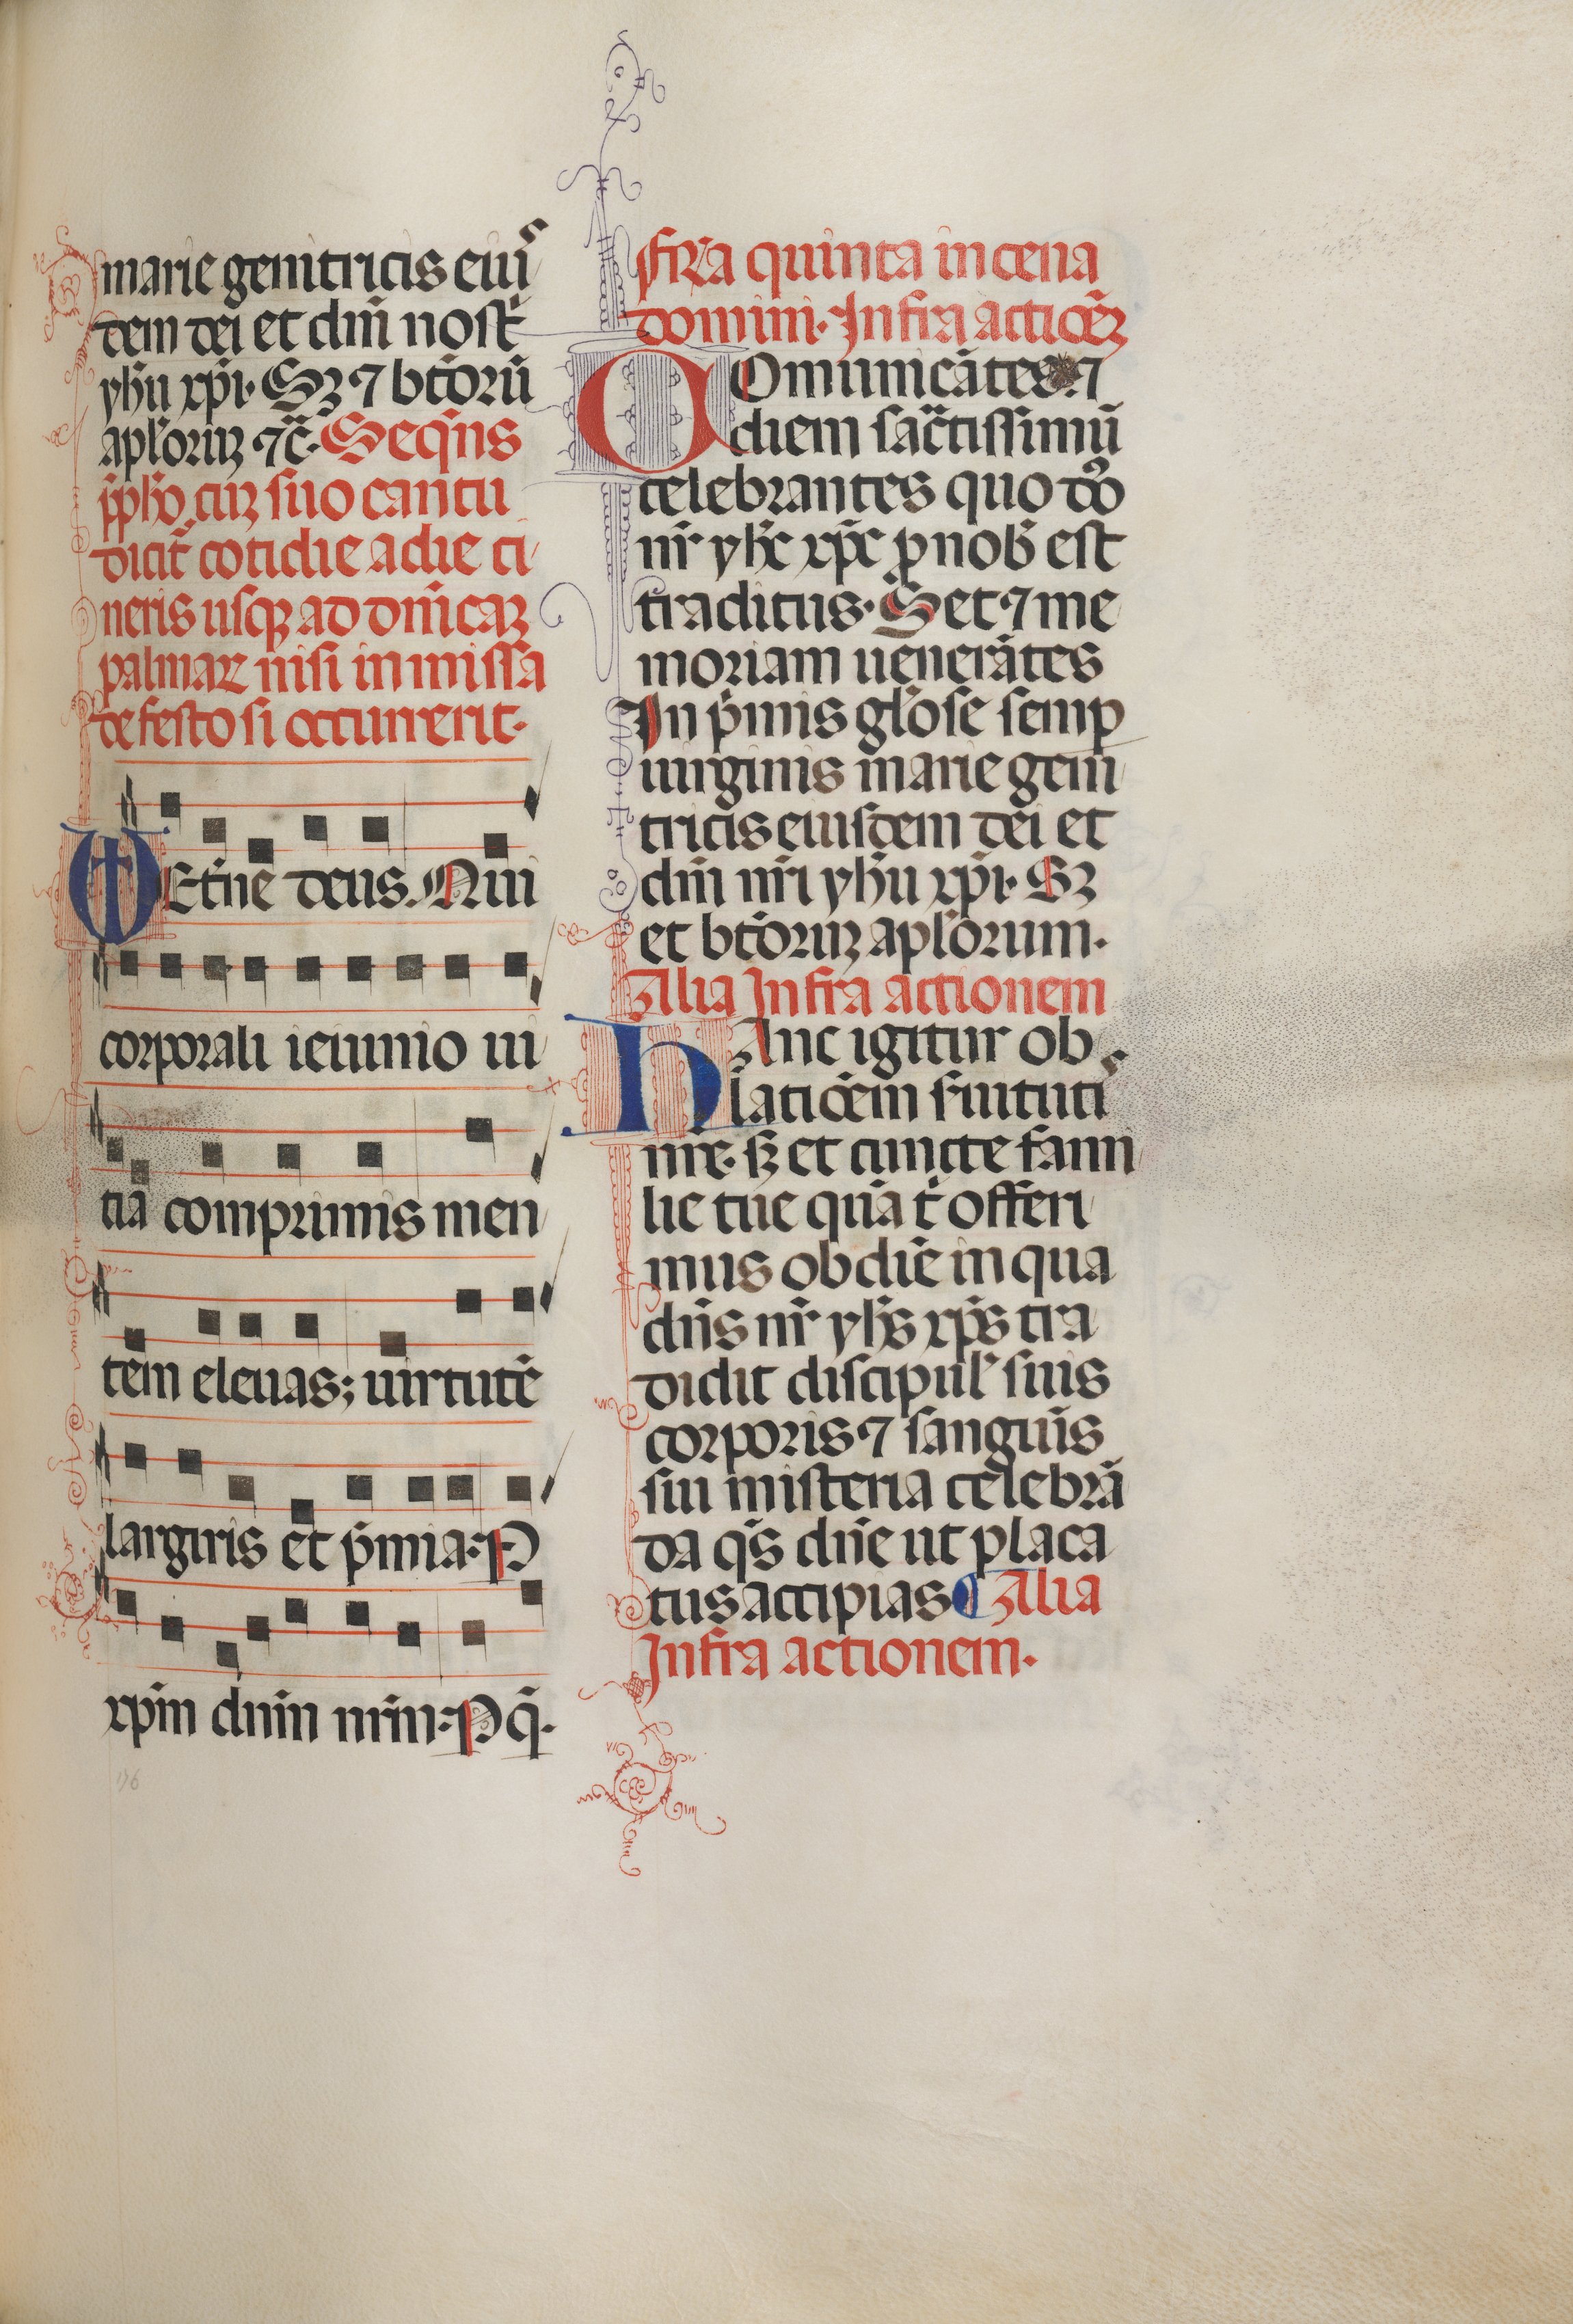 marie genitricis eiuˢ
dem dei et dn̄i nostͬ
yhū xp̄i. Sꝫ ⁊ bt̄orū
apl̄oruꝫ ⁊c̄. Seqn̄s
p̄ph̄o cuꝫ suo cantu
dicit̄ cotidie a die ci
neris usqꝫ ad dn̄icaꝫ
palmaꝝ nisi in missa
de festo si occurrerit.
Et̄ne deus. Qui
corporali ieiunio ui
tia comprimis men
tem eleuas; uirtutē
largiris et p̄mia. P
xp̄m dn̄m nr̄m. P q̄.
Fr̄a quinta in cena
domini. Infra actiōeꝫ
COmunicātes. ⁊
diem sac̄tissimū
celebrantes quo do̅
nr̄ yhc̄ xpc̄ ꝓ nob̄ est
traditus. Set ⁊ me
moriam uenerātes
In p̄mis gl̄ose semꝑ
uirginis marie geni
tricis eiusdem dei et
dn̄i nr̄i yhū xp̄i. Sꝫ
et bt̄oruꝫ apl̄orum.
Alia Infra actionem
HAnc igitur ob
latiōem seruitutiˢ
nr̄e. sꝫ et cuncte fami
lie tue quā t̄ offeri
mus ob diē in qua
dn̄s nr̄ yhs̄ xps̄ tra
didit discipul̄ suis
corporis ⁊ sanguīs
sui misteria celebrā
da qs̄ dn̄e ut placa
tus accipias Alia
Infra actionem.
176